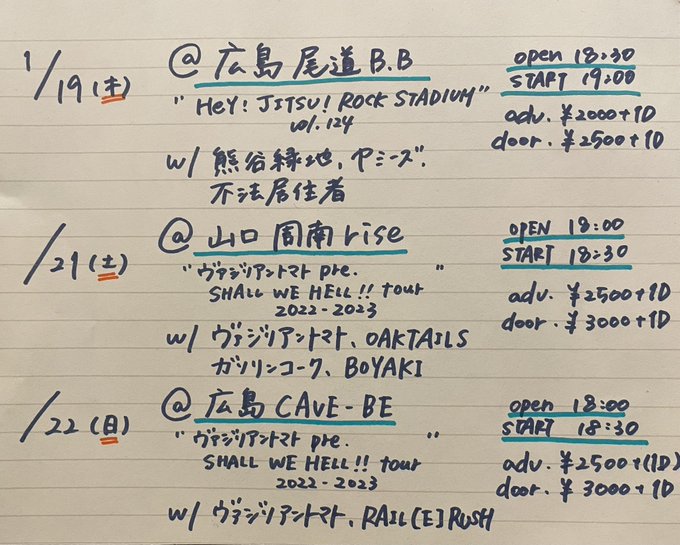 1/19(木) @ 広島 尾道 B.B open 18:30
START 19:00
"HEY! JITSU! ROCK STADIUM"
vol.124
adv. ¥2000+1D
door. ¥2500+1D
w/ 熊谷緑地、ヤミーズ、
不法居住者
/21(土) @ 山口 周南 rise OPEN 18:00
START 18:30
"ヴァージリアントマト pre.
SHALL WE HELL!! tour
2022-2023"
adv. ¥2500+1D
door. ¥3000+1D
w/ ヴァージリアントマト、OAKTAILS
ガソリンコーク、BOYAKI
/22(日) @ 広島 CAVE-BE open 18:00
START 18:30
"ヴァージリアントマト pre.
SHALL WE HELL!! tour
2022-2023"
adv. ¥2500+(1D)
door. ¥3000+1D
w/ ヴァージリアントマト、RAIL[E]RUSH